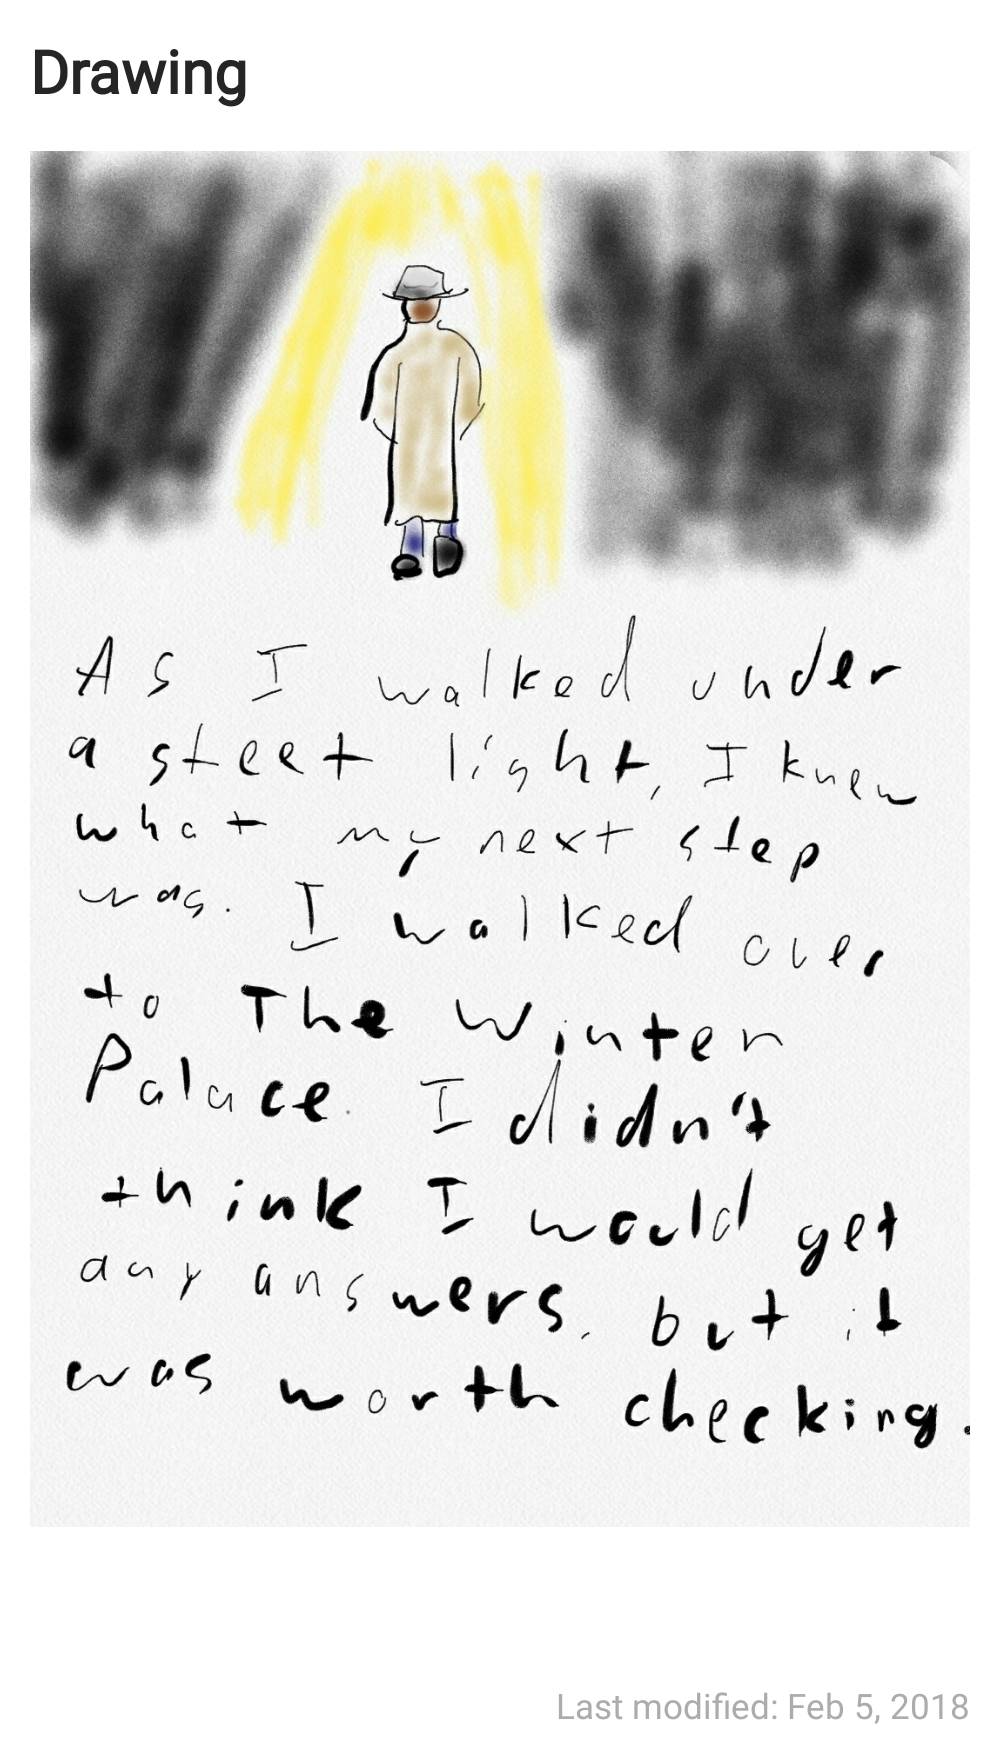 Drawing
As I walked under
a steet light, I knew
what my next step
was. I walked over
to The Winter
Palace. I didn't
think I would get
any answers, but it
was worth checking.
Last modified: Feb 5, 2018